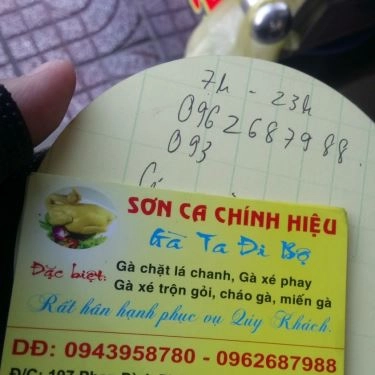 7h - 23h
0962687988.
093
SƠN CA CHÍNH HIỆU
Gà Ta Đi Bộ
Đặc biệt: Gà chặt lá chanh, Gà xé phay
Gà xé trộn gỏi, cháo gà, miến gà
Rất hân hạnh phục vụ Qúy Khách.
DĐ: 0943958780 - 0962687988
Đ/C: 197 Phan